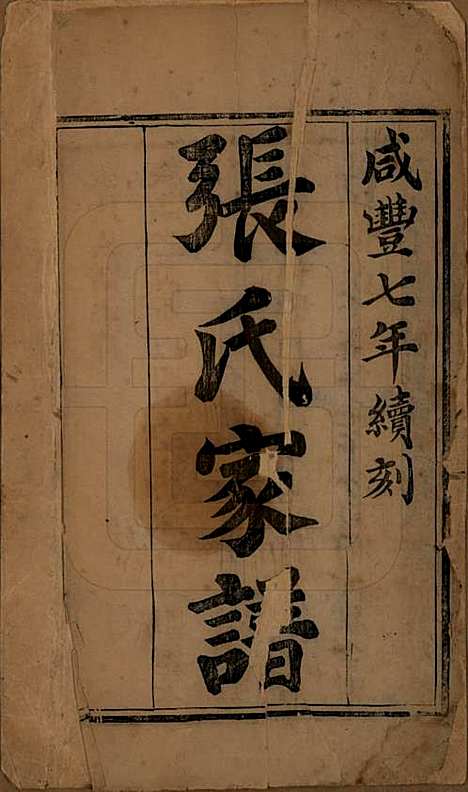 咸豐七年續刻
張氏家譜